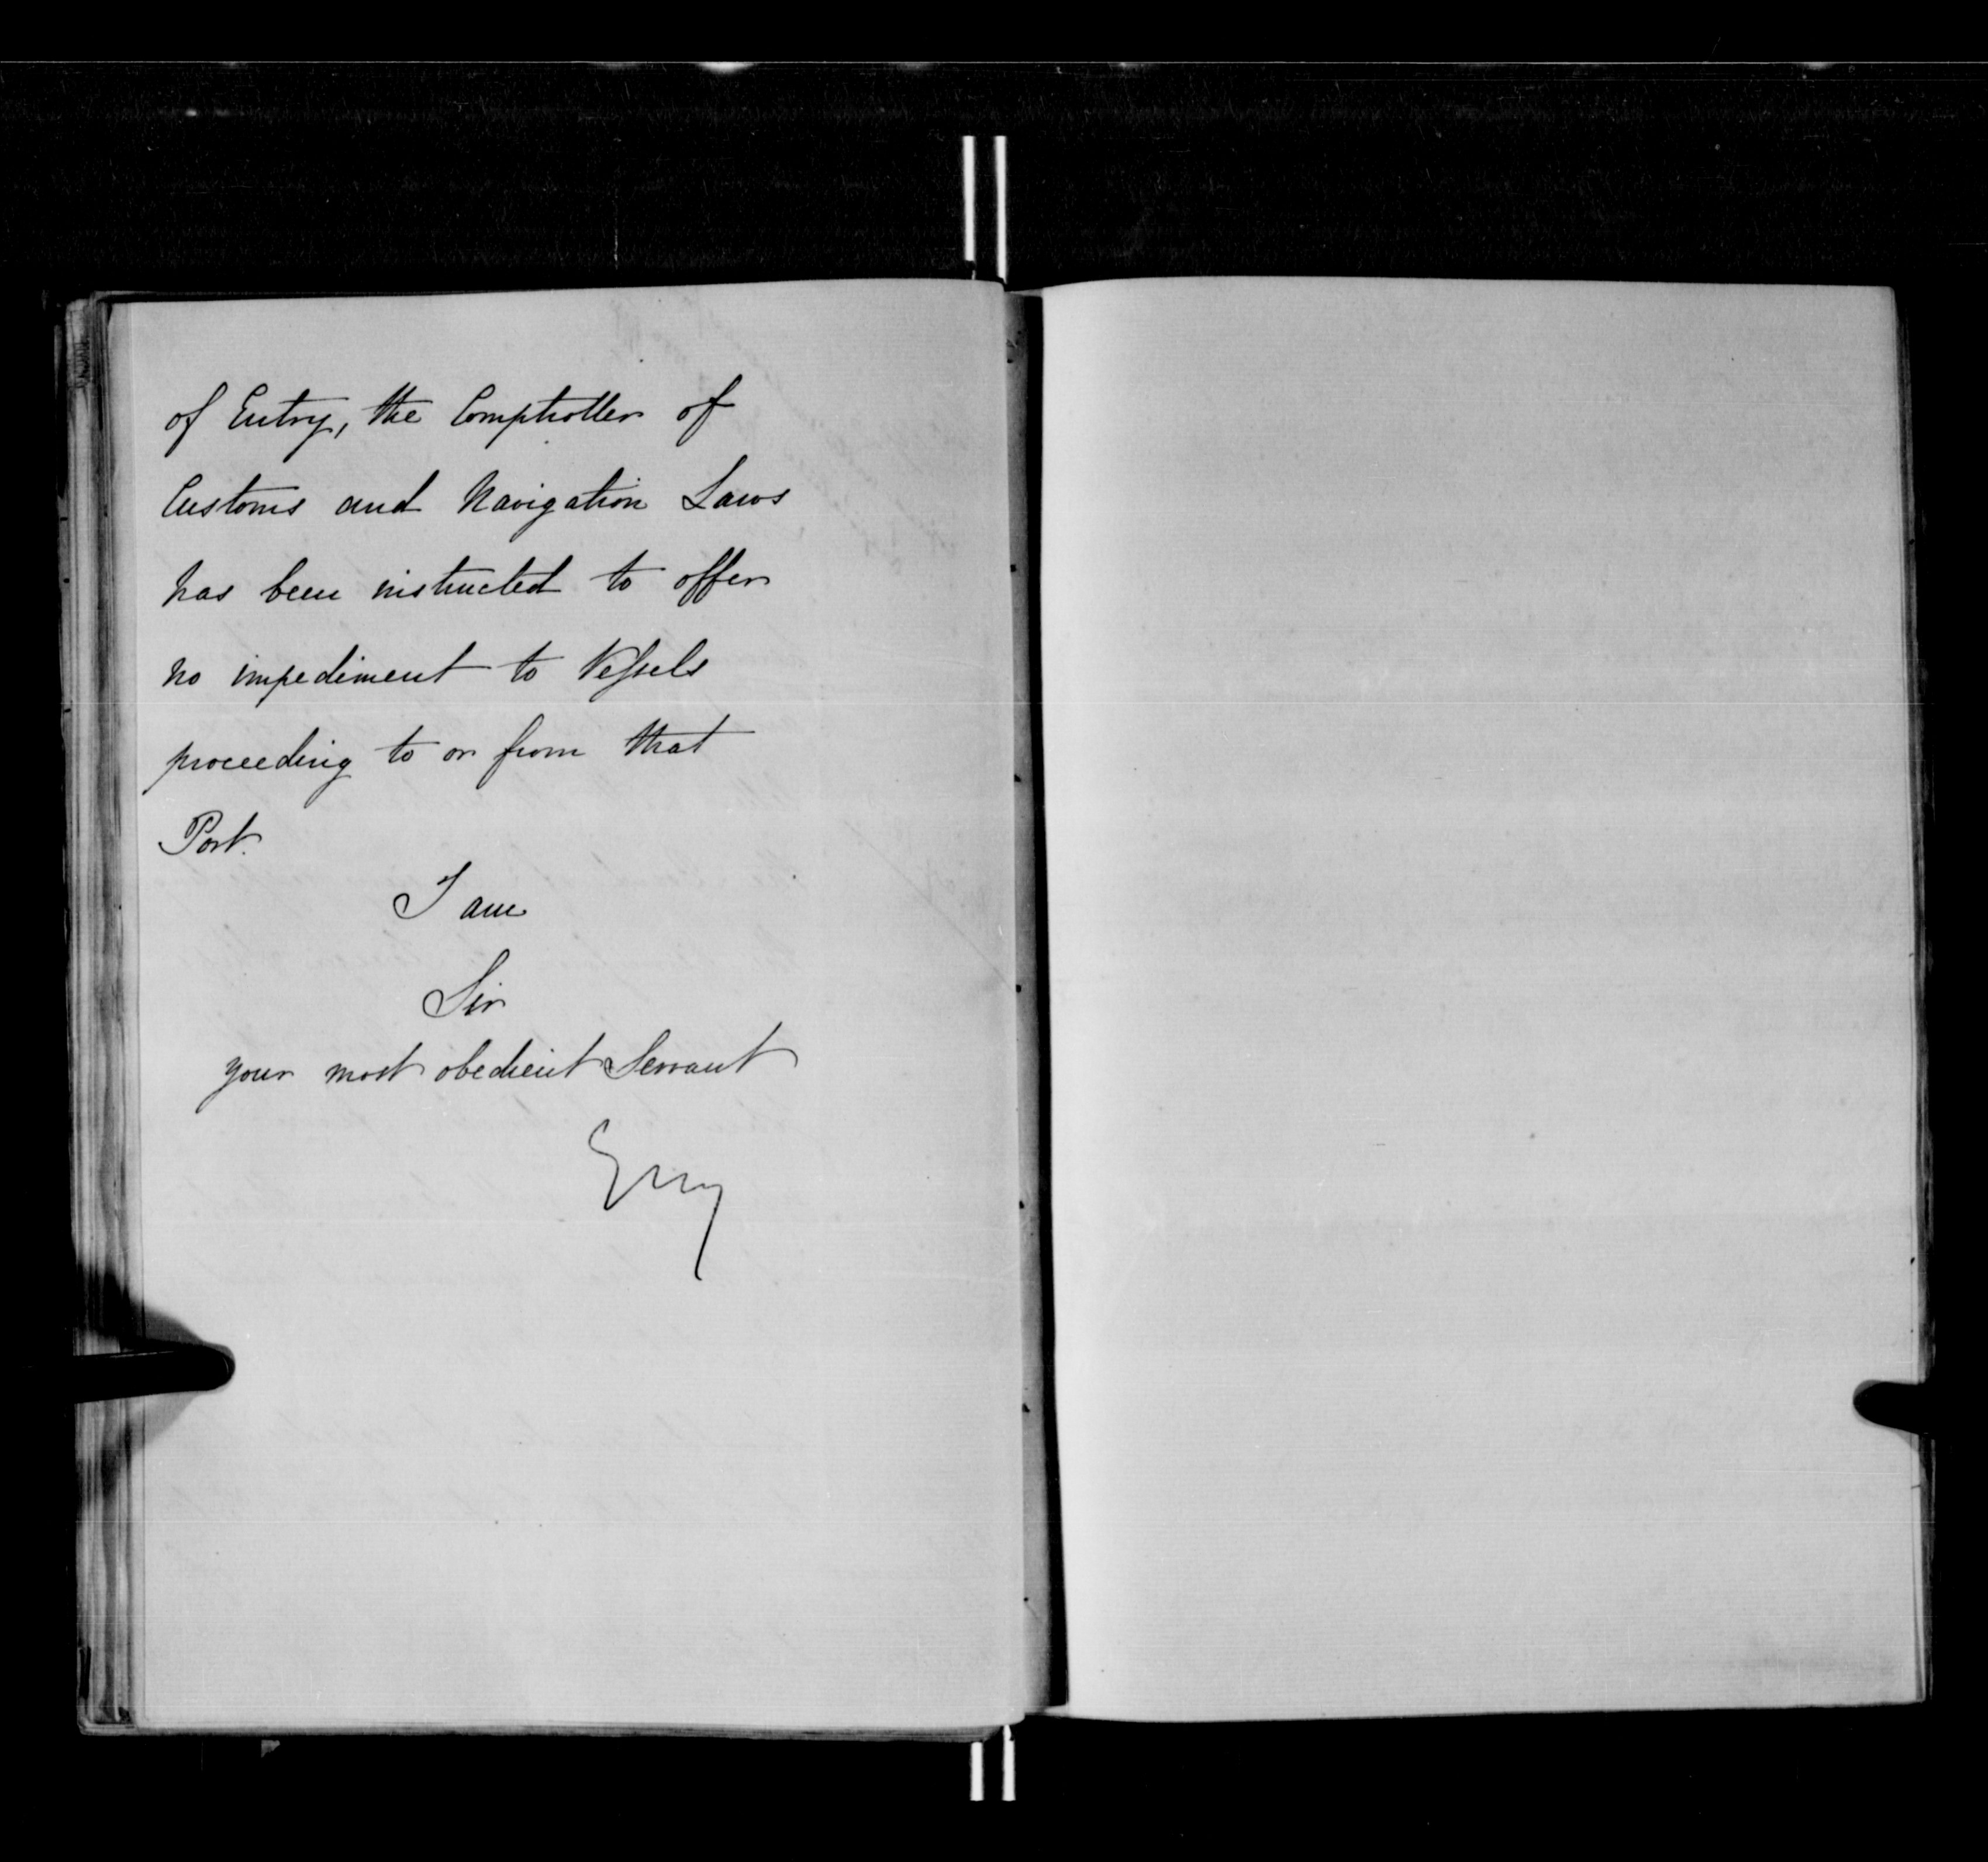 of Entry, the Comptroller of
Customs and Navigation Laws
has been instructed to offer
no impediment to Vessels
proceeding to or from that
Port.
I am
Sir
your most obedient Servant
Grey